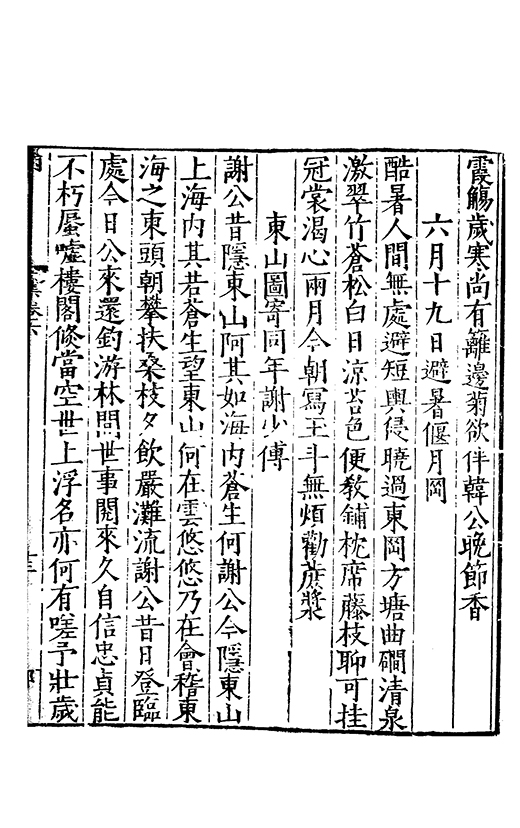 霞觴歲寒尚有籬邊菊欲伴韓公晚節香
六月十九日避暑偃月岡
酷暑人間無處避短輿侵曉過東岡方塘曲磵清泉
激翠竹蒼松白日涼苔色便教鋪枕席藤枝聊可挂
冠裳渴心兩月今朝寫玉斗無煩勸蔗漿
東山圖寄同年謝少傅
謝公昔隱東山阿其如海内蒼生何謝公今隱東山
上海内其若蒼生望東山何在雲悠悠乃在會稽東
海之東頭朝攀扶桑枝夕飲嚴灘流謝公昔日登臨
處今日公來還釣游林間世事閱來久自信忠貞能
不朽蜃嘘樓閣倐當空世上浮名亦何有嗟予壯歲